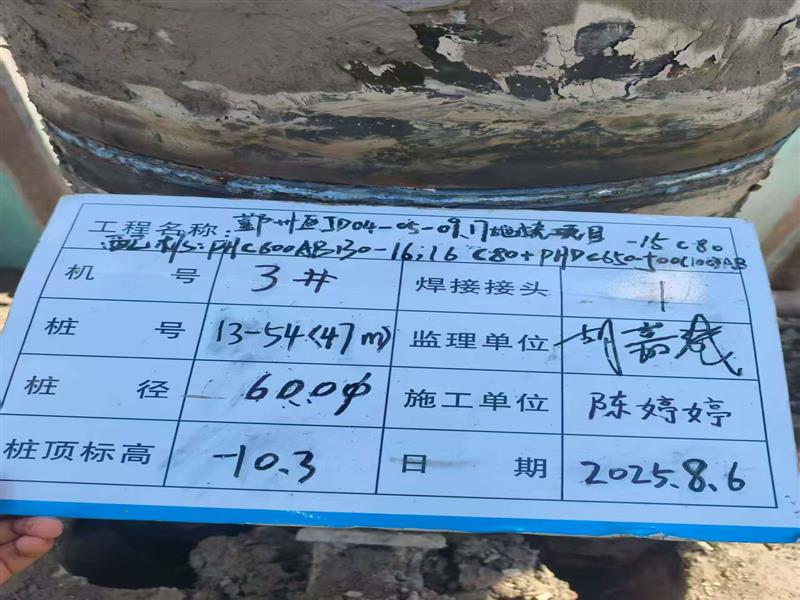 工程名称: 鄞州区JD04-05-09.17地块项目 -15 C80
PHC600AB130-16;16 C80+PHDC650-
机 号 3# 焊接接头 1
桩 号 13-54(47m) 监理单位
桩 径 600φ 施工单位 陈婷婷
桩顶标高 -10.3 日 期 2025.8.6